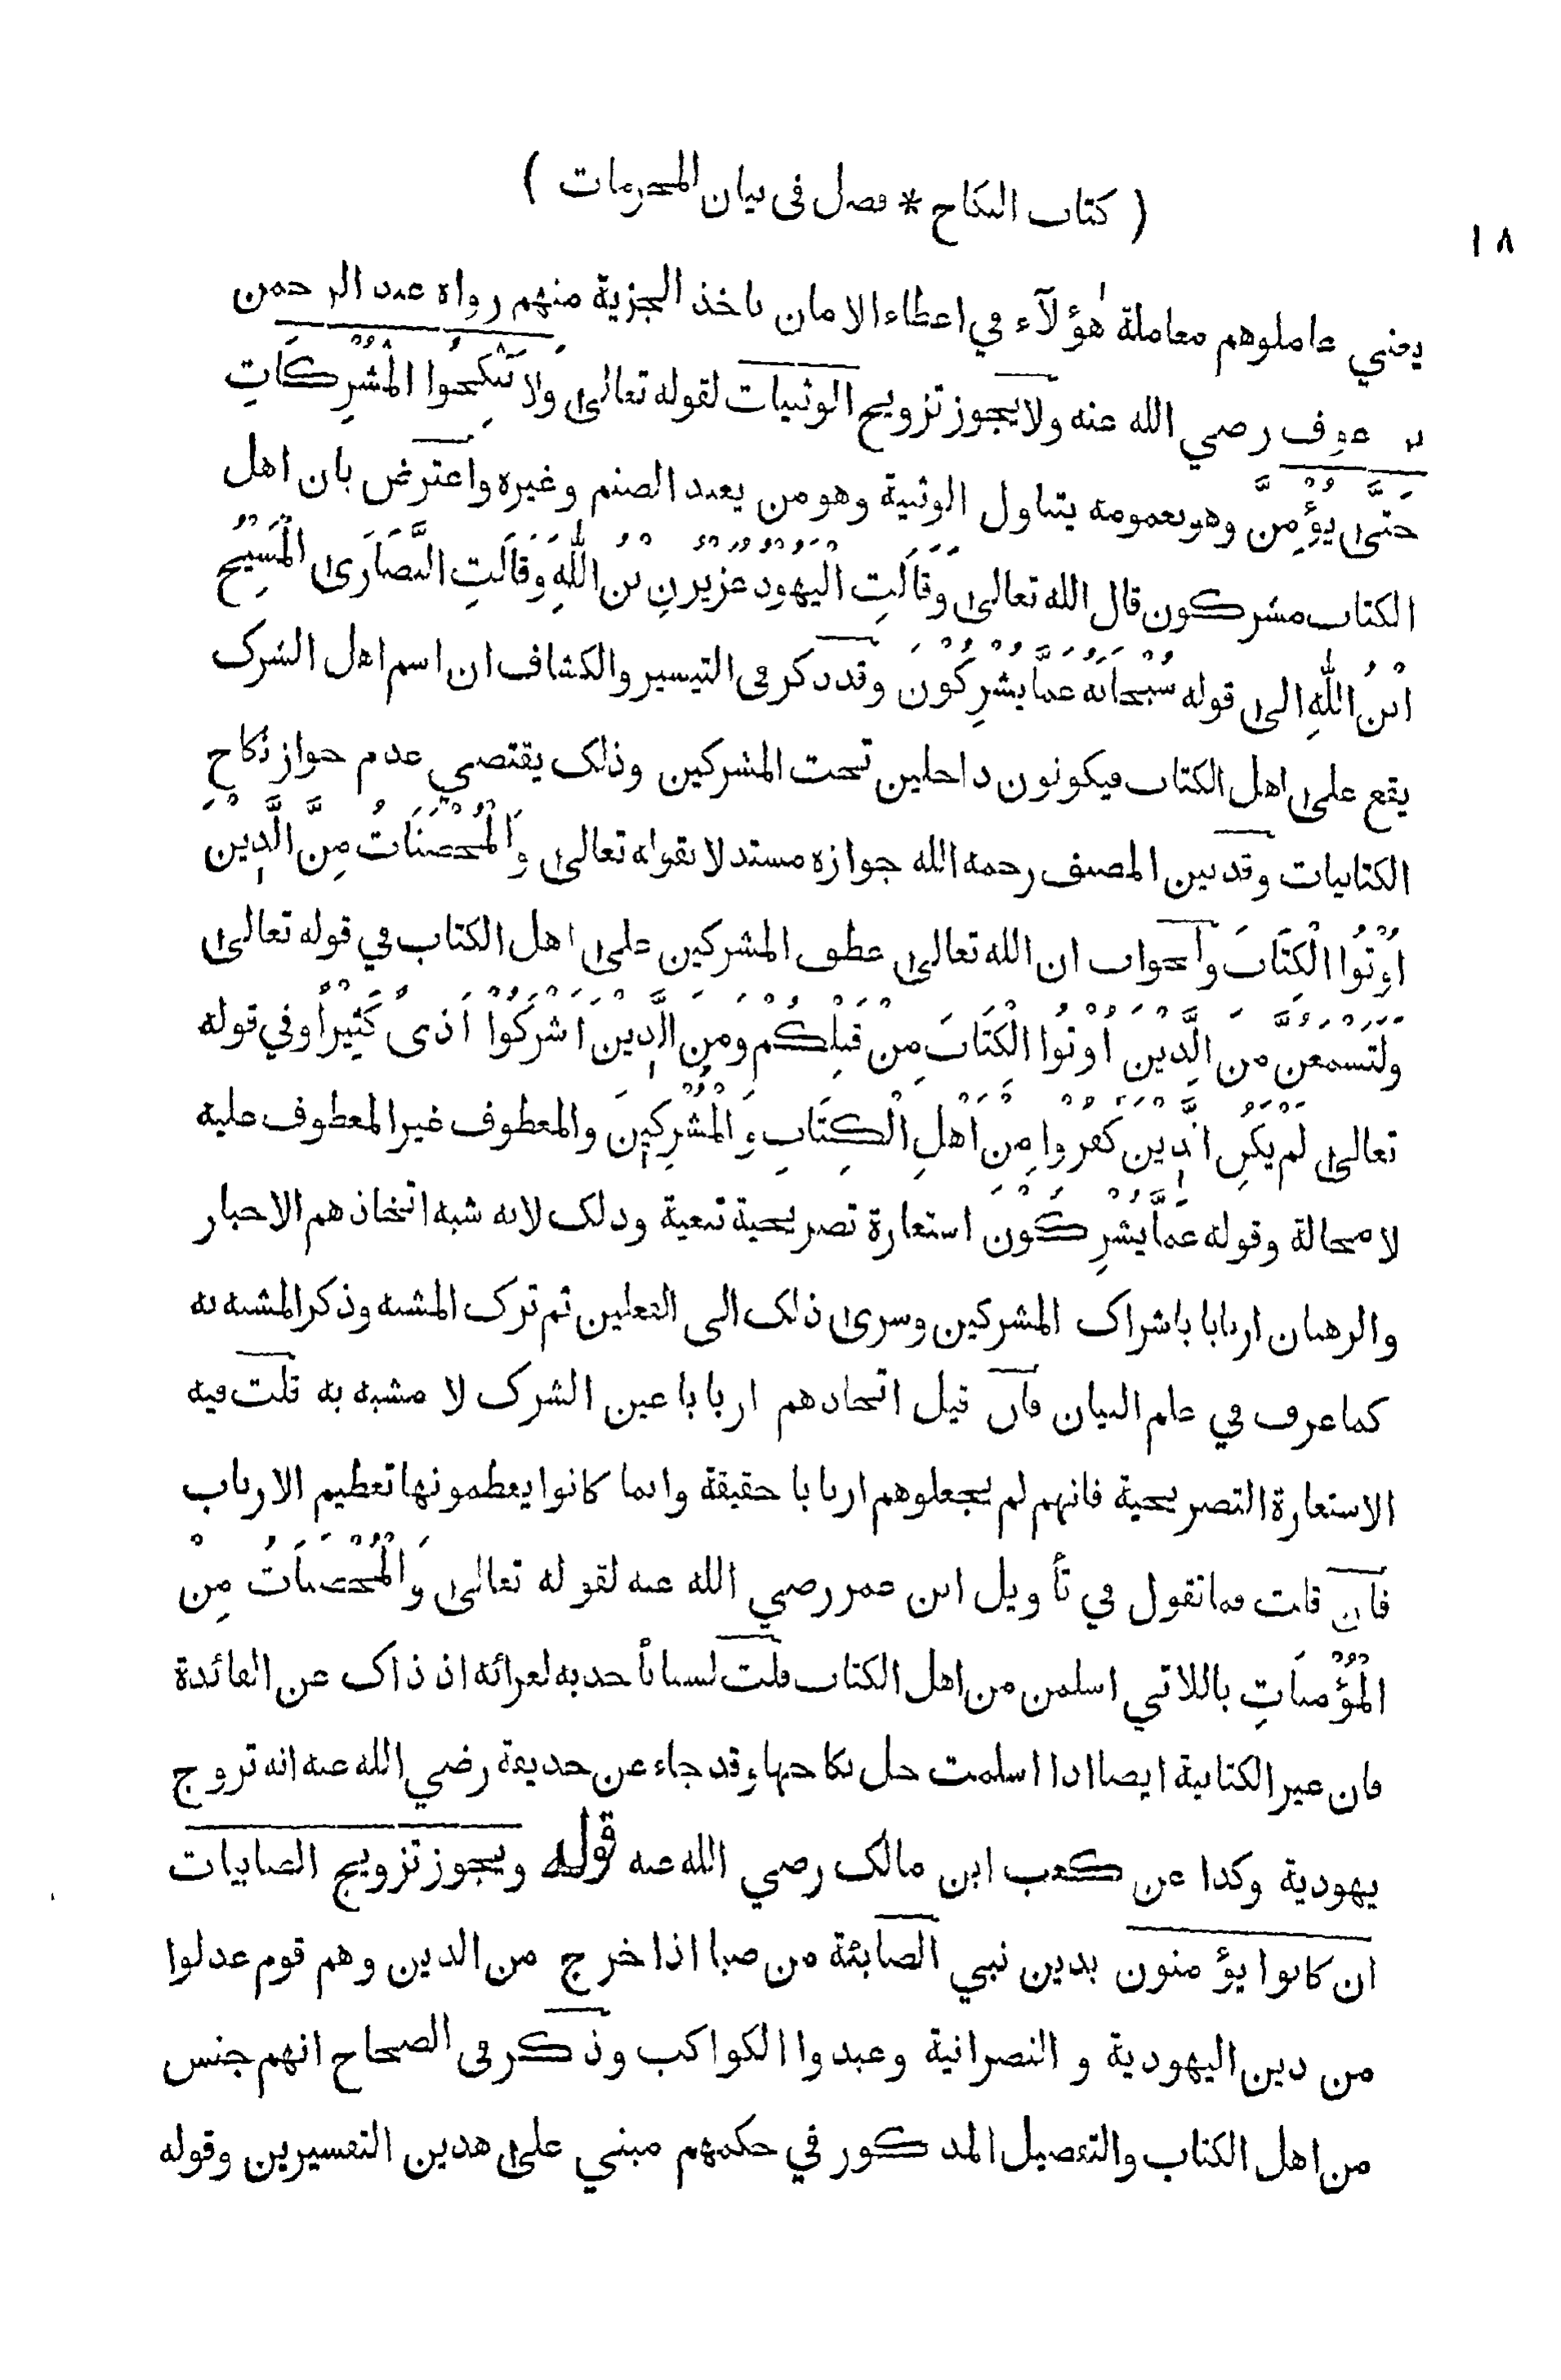 ( كتاب النكاح * فصل فى بيان المحرمات )
١٨
يعني عاملوهم معاملة هؤلآء في اعطاء الامان باخذ الجزية منهم رواه عبد الرحمن
بن عوف رضي الله عنه ولا يجوز تزويج الوثنيات لقوله تعالىٰ وَلَا تَنْكِحُوا الْمُشْرِكَاتِ
حَتّىٰ يُؤْمِنَّ وهو بعمومه يتناول الوثنية وهو من يعبد الصنم وغيره واعترض بان اهل
الكتاب مشركون قال الله تعالىٰ وَقَالَتِ الْيَهُودُ عُزَيْرُنِ بْنُ اللّٰهِ وَقَالَتِ النَّصَارَىٰ الْمَسِيْحُ
ابْنُ اللّٰهِ الىٰ قوله سُبْحَانَهُ عَمَّا يُشْرِكُوْنَ وقد ذكر فى التيسير والكشاف ان اسم اهل الشرك
يقع علىٰ اهل الكتاب فيكونون داخلين تحت المشركين وذلك يقتضي عدم جواز نكاح
الكتابيات وقد بين المصنف رحمه الله جوازه مستدلا بقوله تعالىٰ وَالْمُحْصَنَاتُ مِنَ الَّذِيْنَ
اُوْتُوا الْكِتَابَ والجواب ان الله تعالىٰ عطف المشركين علىٰ اهل الكتاب في قوله تعالىٰ
وَلَتَسْمَعُنَّ مِنَ الَّذِيْنَ اُوْتُوا الْكِتَابَ مِنْ قَبْلِكُمْ وَمِنَ الَّذِيْنَ اَشْرَكُوْا اَذىً كَثِيْراً وفي قوله
تعالىٰ لَمْ يَكُنِ الَّذِيْنَ كَفَرُوْا مِنْ اَهْلِ الْكِتَابِ وَالْمُشْرِكِيْنَ والمعطوف غير المعطوف عليه
لا محالة وقوله عَمَّا يُشْرِكُوْنَ استعارة تصريحية تبعية وذلك لانه شبه اتخاذهم الاحبار
والرهبان اربابا باشراك المشركين وسرىٰ ذلك الى الفعلين ثم ترك المشبه وذكر المشبه به
كما عرف في علم البيان فان قيل اتخاذهم اربابا عين الشرك لا مشبه به قلت فيه
الاستعارة التصريحية فانهم لم يجعلوهم اربابا حقيقة وانما كانوا يعظمونها تعظيم الارباب
فان قلت فما تقول في تأويل ابن عمر رضي الله عنه لقوله تعالىٰ وَالْمُحْصَنَاتُ مِنْ
الْمُؤْمِنَاتِ باللاتي اسلمن من اهل الكتاب قلت لسنا نأخذ به لعرائه اذ ذاك عن الفائدة
فان غير الكتابية ايضا اذا اسلمت حل نكاحها وقد جاء عن حذيفة رضي الله عنه انه تزوج
يهودية وكذا عن كعب ابن مالك رضي الله عنه قوله ويجوز تزويج الصابيات
ان كانوا يؤمنون بدين نبي الصابئة من صبا اذا خرج من الدين وهم قوم عدلوا
من دين اليهودية و النصرانية وعبدوا الكواكب وذكر فى الصحاح انهم جنس
من اهل الكتاب والتفصيل المذكور في حكمهم مبني علىٰ هذين التفسيرين وقوله